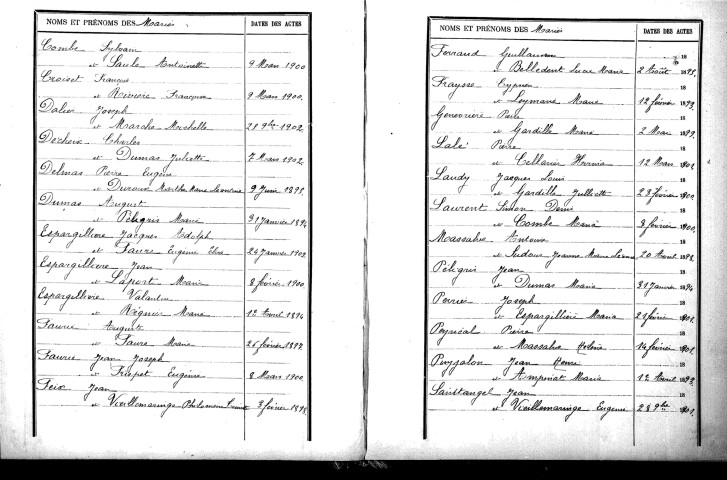 NOMS ET PRÉNOMS DES Mariés DATES DES ACTES
Combe Sylvain
et Saule Antoinette 9 Mars 1900
Croiset François
et Rivière Françoise 9 Mars 1900
Dalier Joseph
et Marche Michelle 28 9bre 1902
Charles
et Dumas Juliette 7 Mars 1902
Delmas Pierre Eugène
et Duroux Marthe Marie 9 Juin 1898
Dumas August
et Peligris Marie 31 Janvier 1894
Espargilliere Jacques Adolph
et Faure Eugénie Elisa 24 Janvier 1902
Espargilliere Jean
et Laport Marie 8 février 1900
Espargilliere Valentin
et Marie 12 Avril 1894
Faurie Auguste
et Faure Marie 26 février 1897
Faurie Jean Joseph
et Eugénie 8 Mars 1900
Feix Jean
et Vieillemaringe Philomène 3 février 1898
NOMS ET PRÉNOMS DES Mariés DATES DES ACTES
Ferrand Guillaume 18
et Belledent Marie 2 Août 1898
Fraysse Cyprien 18
et Leymarie Marie 12 février 1899
Pierre 18
et Gardille Marie 2 Mars 1899
Lalé Pierre 18
et Cellarier 12 Mars 1901
Laudy Jacques Louis 18
et Gardille Juliette 23 février 1900
Laurent Simon Denis 18
et Combe Maria 3 février 1900
Massalve Antoine 18
et Sudour Jeanne Marie 20 Avril 1898
Peligris Jean 18
et Dumas Maria 31 Janvier 1894
Perrier Joseph 18
et Espargilliere Maria 23 février 1901
Peyrical Pierre 18
et Massalve 14 février 1901
Puyjalon Jean Henri 18
et Maria 12 Avril 1899
Saintangel Jean 18
et Vieillemaringe Eugénie 28 9bre 1901